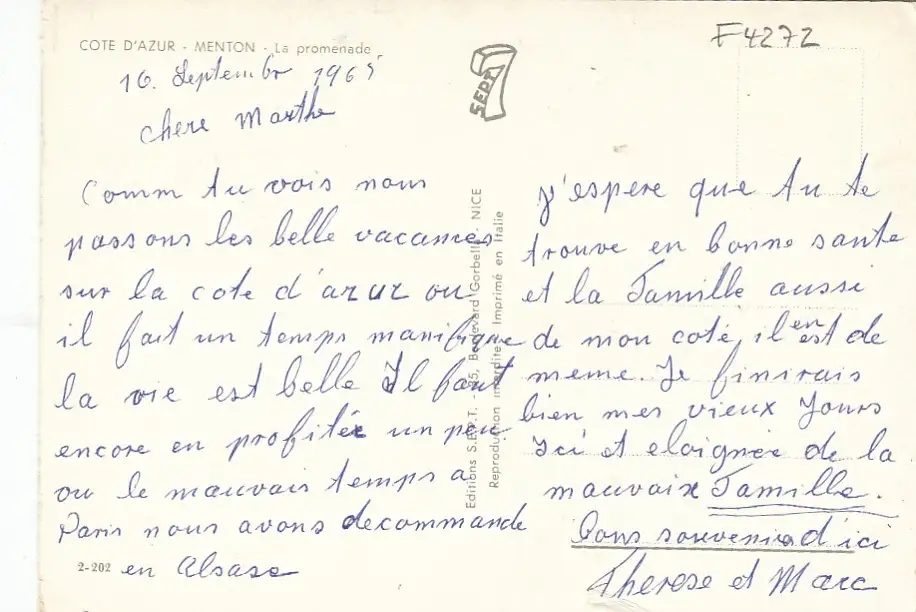 COTE D'AZUR - MENTON - La promenade
F4272
SEPT
16. Septembr 1965
chere Marthe
Comm tu vois nous
passons les belle vacances
sur la cote d'azur ou
il fait un temps manifique
la vie est belle Il faut
encore en profitée un peu
ou le mauvais temps a
Paris nous avons decommande
en Alsase
2-202
Editions S.E.P.T. - 35, Boulevard Gorbella - NICE
Reproduction interdite - Imprimé en Italie
j'espere que tu te
trouve en bonne sante
et la Famille aussi
de mon coté, il en est de
meme. Je finirais
bien mes vieux Jours
Ici et eloignée de la
mauvaise Famille.
Bons souvenirs d'ici
Therese et Marc